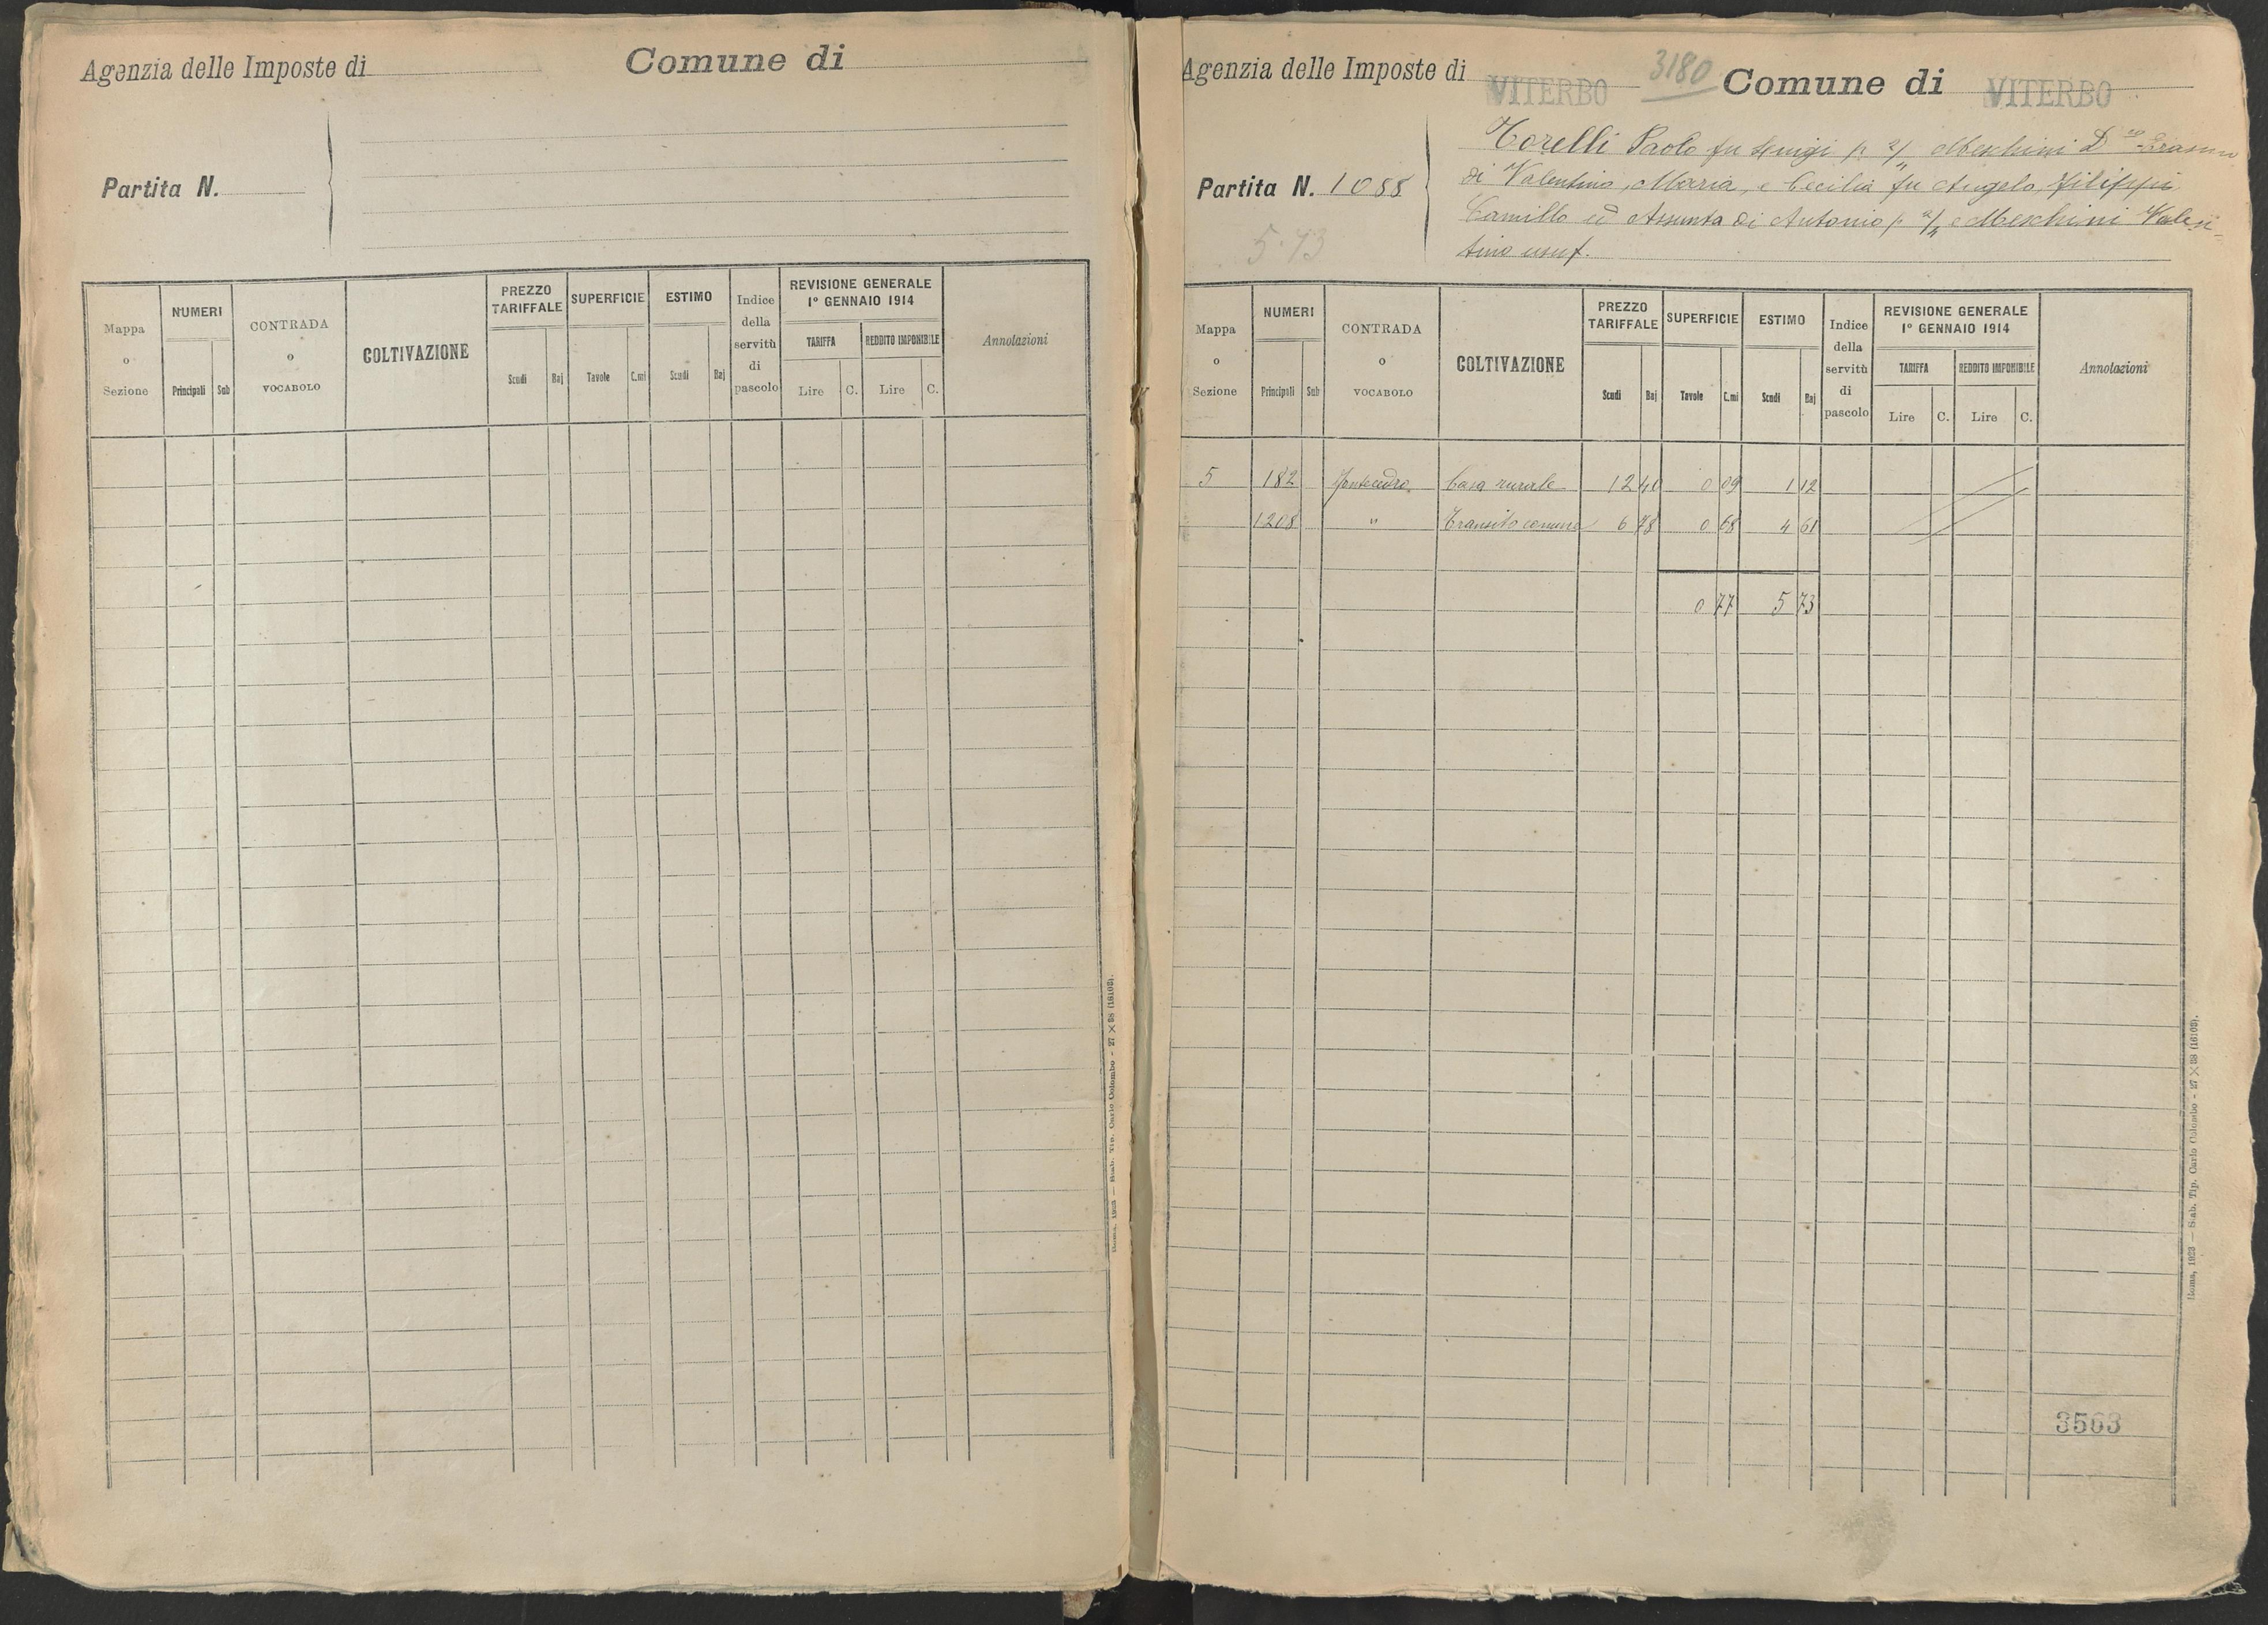 Agenzia delle Imposte di
Comune di
Partita N.
Mappa o Sezione
NUMERI
Principali
Sub
CONTRADA o VOCABOLO
COLTIVAZIONE
PREZZO TARIFFALE
Scudi
Baj
SUPERFICIE
Tavole
C.mi
ESTIMO
Scudi
Baj
Indice della servitù di pascolo
REVISIONE GENERALE
1° GENNAIO 1914
TARIFFA
REDDITO IMPONIBILE
Lire
C.
Lire
C.
Annotazioni
Roma, 1923 — Stab. Tip. Carlo Colombo - 27 X 38 (16108).
Agenzia delle Imposte di VITERBO
3180
Comune di VITERBO
Partita N. 1088
5.73
Torelli Paolo fu Luigi p. 2/4 Meschini D.co Erasmo
di Valentino, Maria, e Cecilia fu Angelo, Filippi
Camillo ed Assunta di Antonio p. 2/4 e Meschini Valen-
tino usuf.
Mappa o Sezione
NUMERI
Principali
Sub
CONTRADA o VOCABOLO
COLTIVAZIONE
PREZZO TARIFFALE
Scudi
Baj
SUPERFICIE
Tavole
C.mi
ESTIMO
Scudi
Baj
Indice della servitù di pascolo
REVISIONE GENERALE
1° GENNAIO 1914
TARIFFA
REDDITO IMPONIBILE
Lire
C.
Lire
C.
Annotazioni
5 182 Casa rurale 12 40 0 09 1 12
1208 " Transito comune 6 78 0 68 4 61
0 77 5 73
3563
Roma, 1923 — Stab. Tip. Carlo Colombo - 27 X 38 (16108).